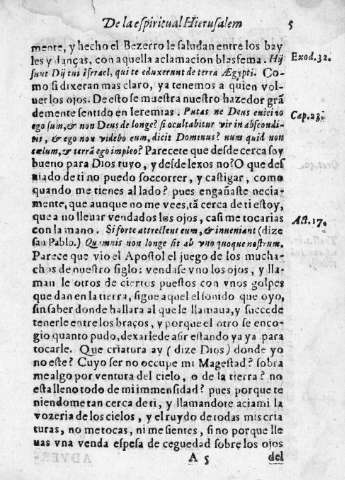 De la espiritual Hierusalem 5
mente, y hecho el Bezerro le saludan entre los bay
les y danças, con aquella aclamacion blasfema. Hi
sunt Dij tui Israel, qui te eduxerunt de terra Ægypti. Co- Exod. 32.
mo si dixeran mas claro, ya tenemos a quien vol-
uer los ojos. De esto se muestra nuestro hazedor grã
demente sentido en Ieremias. Putas ne Deus è vicino
ego sum, & non Deus de longe? si occultabitur vir in abscondi- Cap. 23.
tis, & ego non videbo eum, dicit Dominus? num quid non
cœlum, & terrã ego impleo? Parecete que desde cerca soy
bueno para Dios tuyo, y desde lexos no? O que des
uiado de ti no puedo soccorrer, y castigar, como
quando me tienes al lado? pues engañaste necia-
mente, que aunque no me vees, tã cerca de ti estoy,
que a no lleuar vendados los ojos, casi me tocarias Act. 17.
con la mano. Si forte attrectent eum, & inueniant (dize
san Pablo.) Quamuis non longe sit ab vno quoque nostrum.
Parece que vio el Apostol el juego de los mucha-
chos de nuestro siglo: vendase vno los ojos, y lla-
man le otros de ciertos puestos con vnos golpes
que dan en la tierra, sigue aquel el sonido que oyo,
sin saber donde hallara al que le llamaua, y succede
tenerle entre los braços, y porque el otro se enco-
gio quanto pudo, dexarle de asir estando ya ya para
tocarle. Que criatura ay (dize Dios) donde yo
no este? Cuyo ser no occupe mi Magestad? sobra
me algo por ventura del cielo, o de la tierra? no
esta lleno todo de mi immensidad? pues porque te
niendome tan cerca de ti, y llamandote aciami la
vozeria de los cielos, y el ruydo de todas mis cria
turas, no me tocas, ni me sientes, si no porque lle
uas vna venda espesa de ceguedad sobre los ojos
A 5 del